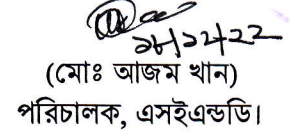 ১৮/১২/২২
(মোঃ আজম খান)
পরিচালক, এসইএন্ডডি।